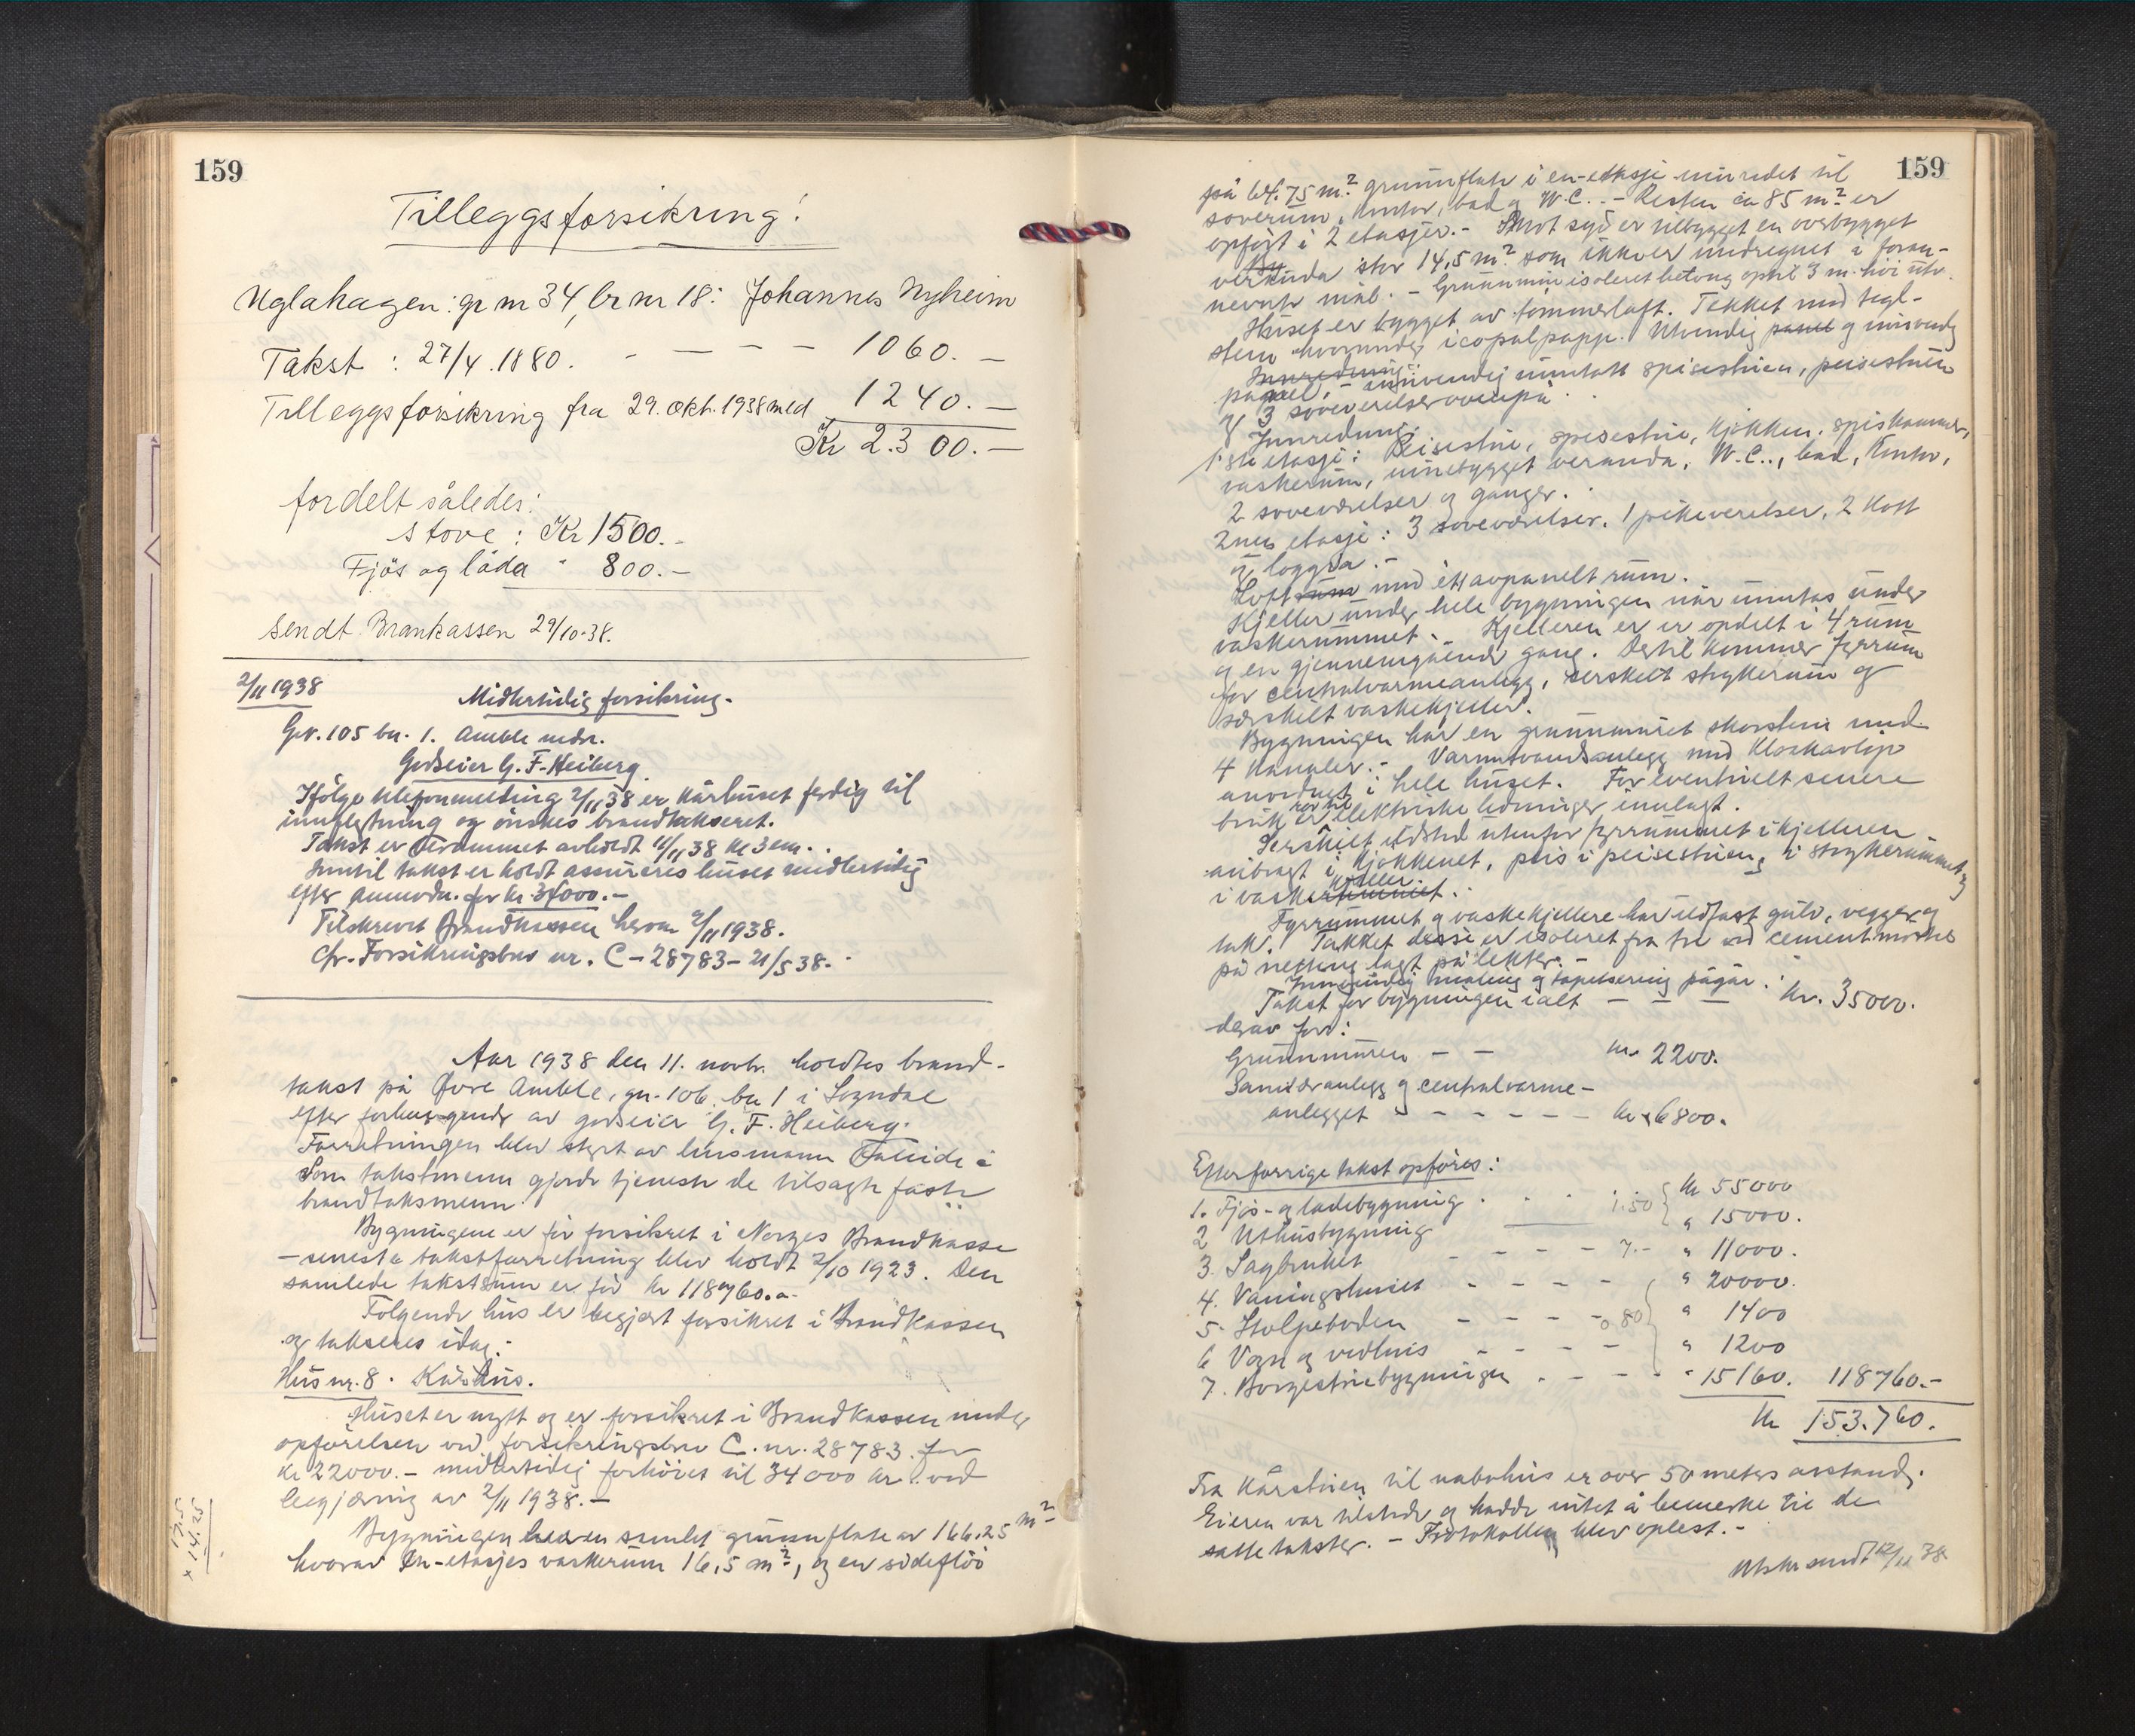 159
Tilleggsforsikring!
Uglahagen: gr nr 34, br nr 18: Johannes Nyheim
Takst : 27/4.1880. - - - - 1060.-
Tilleggsforsikring fra 29. okt. 1938 med 1240.-
Kr 2.300.-
fordelt således:
stove : Kr 1500.-
Fjös og låda " 800.-
sendt Brankassen 29/10-38.
2/11 1938
Midlertidig forsikring.
Gr. 105 bn. 1. Amble nedr.
Godseier G. F. Heiberg.
Ifölge telefonmelding 2/11 38 er Kårhuset ferdig til
innflytning og önskes brandtakseret.
Takst er berammet avholdt 11/11 38 kl 3 em..
Inntil takst er holdt assureres huset midlertidig
efter anmodn. for kr. 34000.-
Tilskrevet Brandkassen herom 2/11 1938.
Cfr. Forsikringsbev nr. C-28783-21/5 38.-
Aar 1938 den 11. novbr. holdtes brand-
takst på Övre Amble, gn. 106. bn 1 i Sogndal
efter forlangende av godseier G. F. Heiberg.
Forretningen blev styrt av lensmann
Som takstmenn gjorde tjeneste de tilsagte faste
brandtakstmenn.
Bygningene er för forsikret i Norges Brandkasse
- seneste takstforretning blev holdt 2/10 1923. Den
samlede takstsum er för kr 118760.-
Folgende hus er begjært forsikret i Brandkassen
og takseres idag:
Hus nr. 8. Kårhus.
Huset er nytt og er forsikret i Brandkassen under
opförelsen ved forsikringsbev C. nr. 28783. for
kr 22000.- midlertidig forhöiet til 34000 kr. ved
begjæring av 2/11 1938.-
Bygningen har en samlet grunnflate av 166.25 m²
hvorav en-etasjes vaskerum 16,5 m², og en sideflöi
17.5
x 14.25
159
på 64.75 m² grunnflate i en-etasje innredet til
soverum, kontor, bad og W.C.. - Resten ca 85 m² er
opfört i 2 etasjer.- Imot syd er tilbygget en overbygget
veranda stor 14,5 m² som ikke er medregnet i foran-
nevnte mål. - Grunnmur isoleret betong optil 3 m. höi utv.
Huset er bygget av tömmerlaft. Tekket med tegl-
sten hvorunder icopalpapp. Utvendig panel og innvendig
Innredning:
panel, - innvendig unntatt spisestuen, peisestuen
og 3 soveværelser ovenpå.
Innredning:
1ste etasje: Peisestue, spisestue, kjökken, spiskammer,
vaskerum, innebygget veranda, W.C.., bad, kontor,
2 soveværelser og ganger.
2nen etasje: 3 soveværelser, 1 pikeværelser, 2 kott
og loggia.-
Loft med ett avpanelt rum.
Kjeller under hele bygningen når unntas under
vaskerummet.- Kjelleren er er opdelt i 4 rum
og en gjennemgående gang. Dertil kommer fyrrum
for centralvarmeanlegg, serskilt strykerum og
særskilt vaskekjeller.
Bygningen har en grunnmuret skorsten med
4 kanaler.- Varmtvandsanlegg med kloakavlöp
anordnet i hele huset. For eventuelt senere
bruk er rör til elektriske ledninger innlagt.
Serskilt ildsted utenfor fyrrummet i kjelleren -
anbragt i kjökkenet, peis i peisestuen, i strykerummet og
i vaskekjeller.
Fyrrummet og vaskekjellere har ildfast gulv, vegger og
tak. Takket disse er isoleret fra tre ved cementmörtel
på netting lagt på lekter.-
Innvendig maling og tapetsering pågår.
Takst for bygningen ialt - - - kr. 35000.
derav for:
Grunnmuren - - kr 2200.
Sanitæranlegg og centralvarme-
anlegget - - - - - kr 6800.
Efter forrige takst opföres:
1. Fjös- og ladebygning . . . 1.50 kr 55000
2 Uthusbygning " 15000.
3. Sagbruket - - - - 7.- " 11000.
4. Våningshuset - - - - " 20000.
5. Stolpeboden - - - - 0.80 " 1400
6 Vogn og vedhus - - - - " 1200
7. Borgestuebygningen . - - - " 15160. 118760.-
Kr 153.760.
Fra Kårstuen til nabohus er over 50 meters avstand.
Eieren var tilstede og hadde intet å bemerke til de
satte takster. - Protokollen blev oplest.-
Utskr sendt 12/11 38